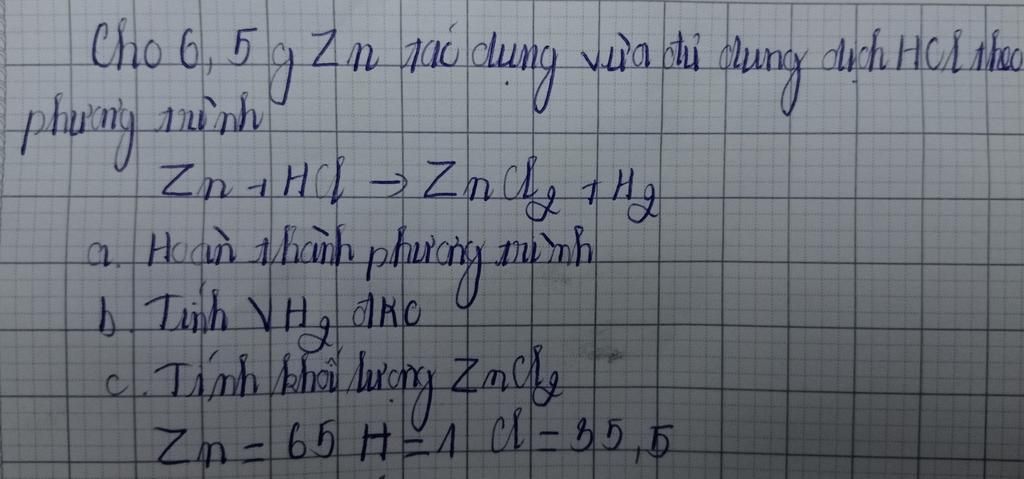 Cho 6,5 g Zn tác dụng vừa đủ dung dịch HCl theo
phương trình
Zn + HCl → ZnCl₂ + H₂
a. Hoàn thành phương trình
b. Tính VH₂ đKC
c. Tính khối lượng ZnCl₂
Zn = 65 H = 1 Cl = 35,5